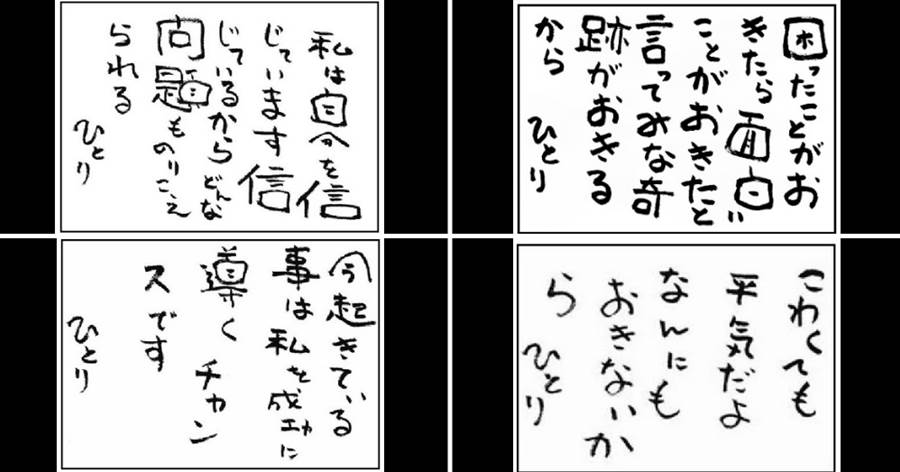 私は自分を信
じています信
じているからどんな
問題ものりこえ
られる
ひとり
困ったことがお
きたら面白い
ことがおきたと
言ってみな奇
跡がおきる
から ひとり
今起きている
事は私を成功に
導くチャン
スです
ひとり
こわくても
平気だよ
なんにも
おきないか
ら ひとり